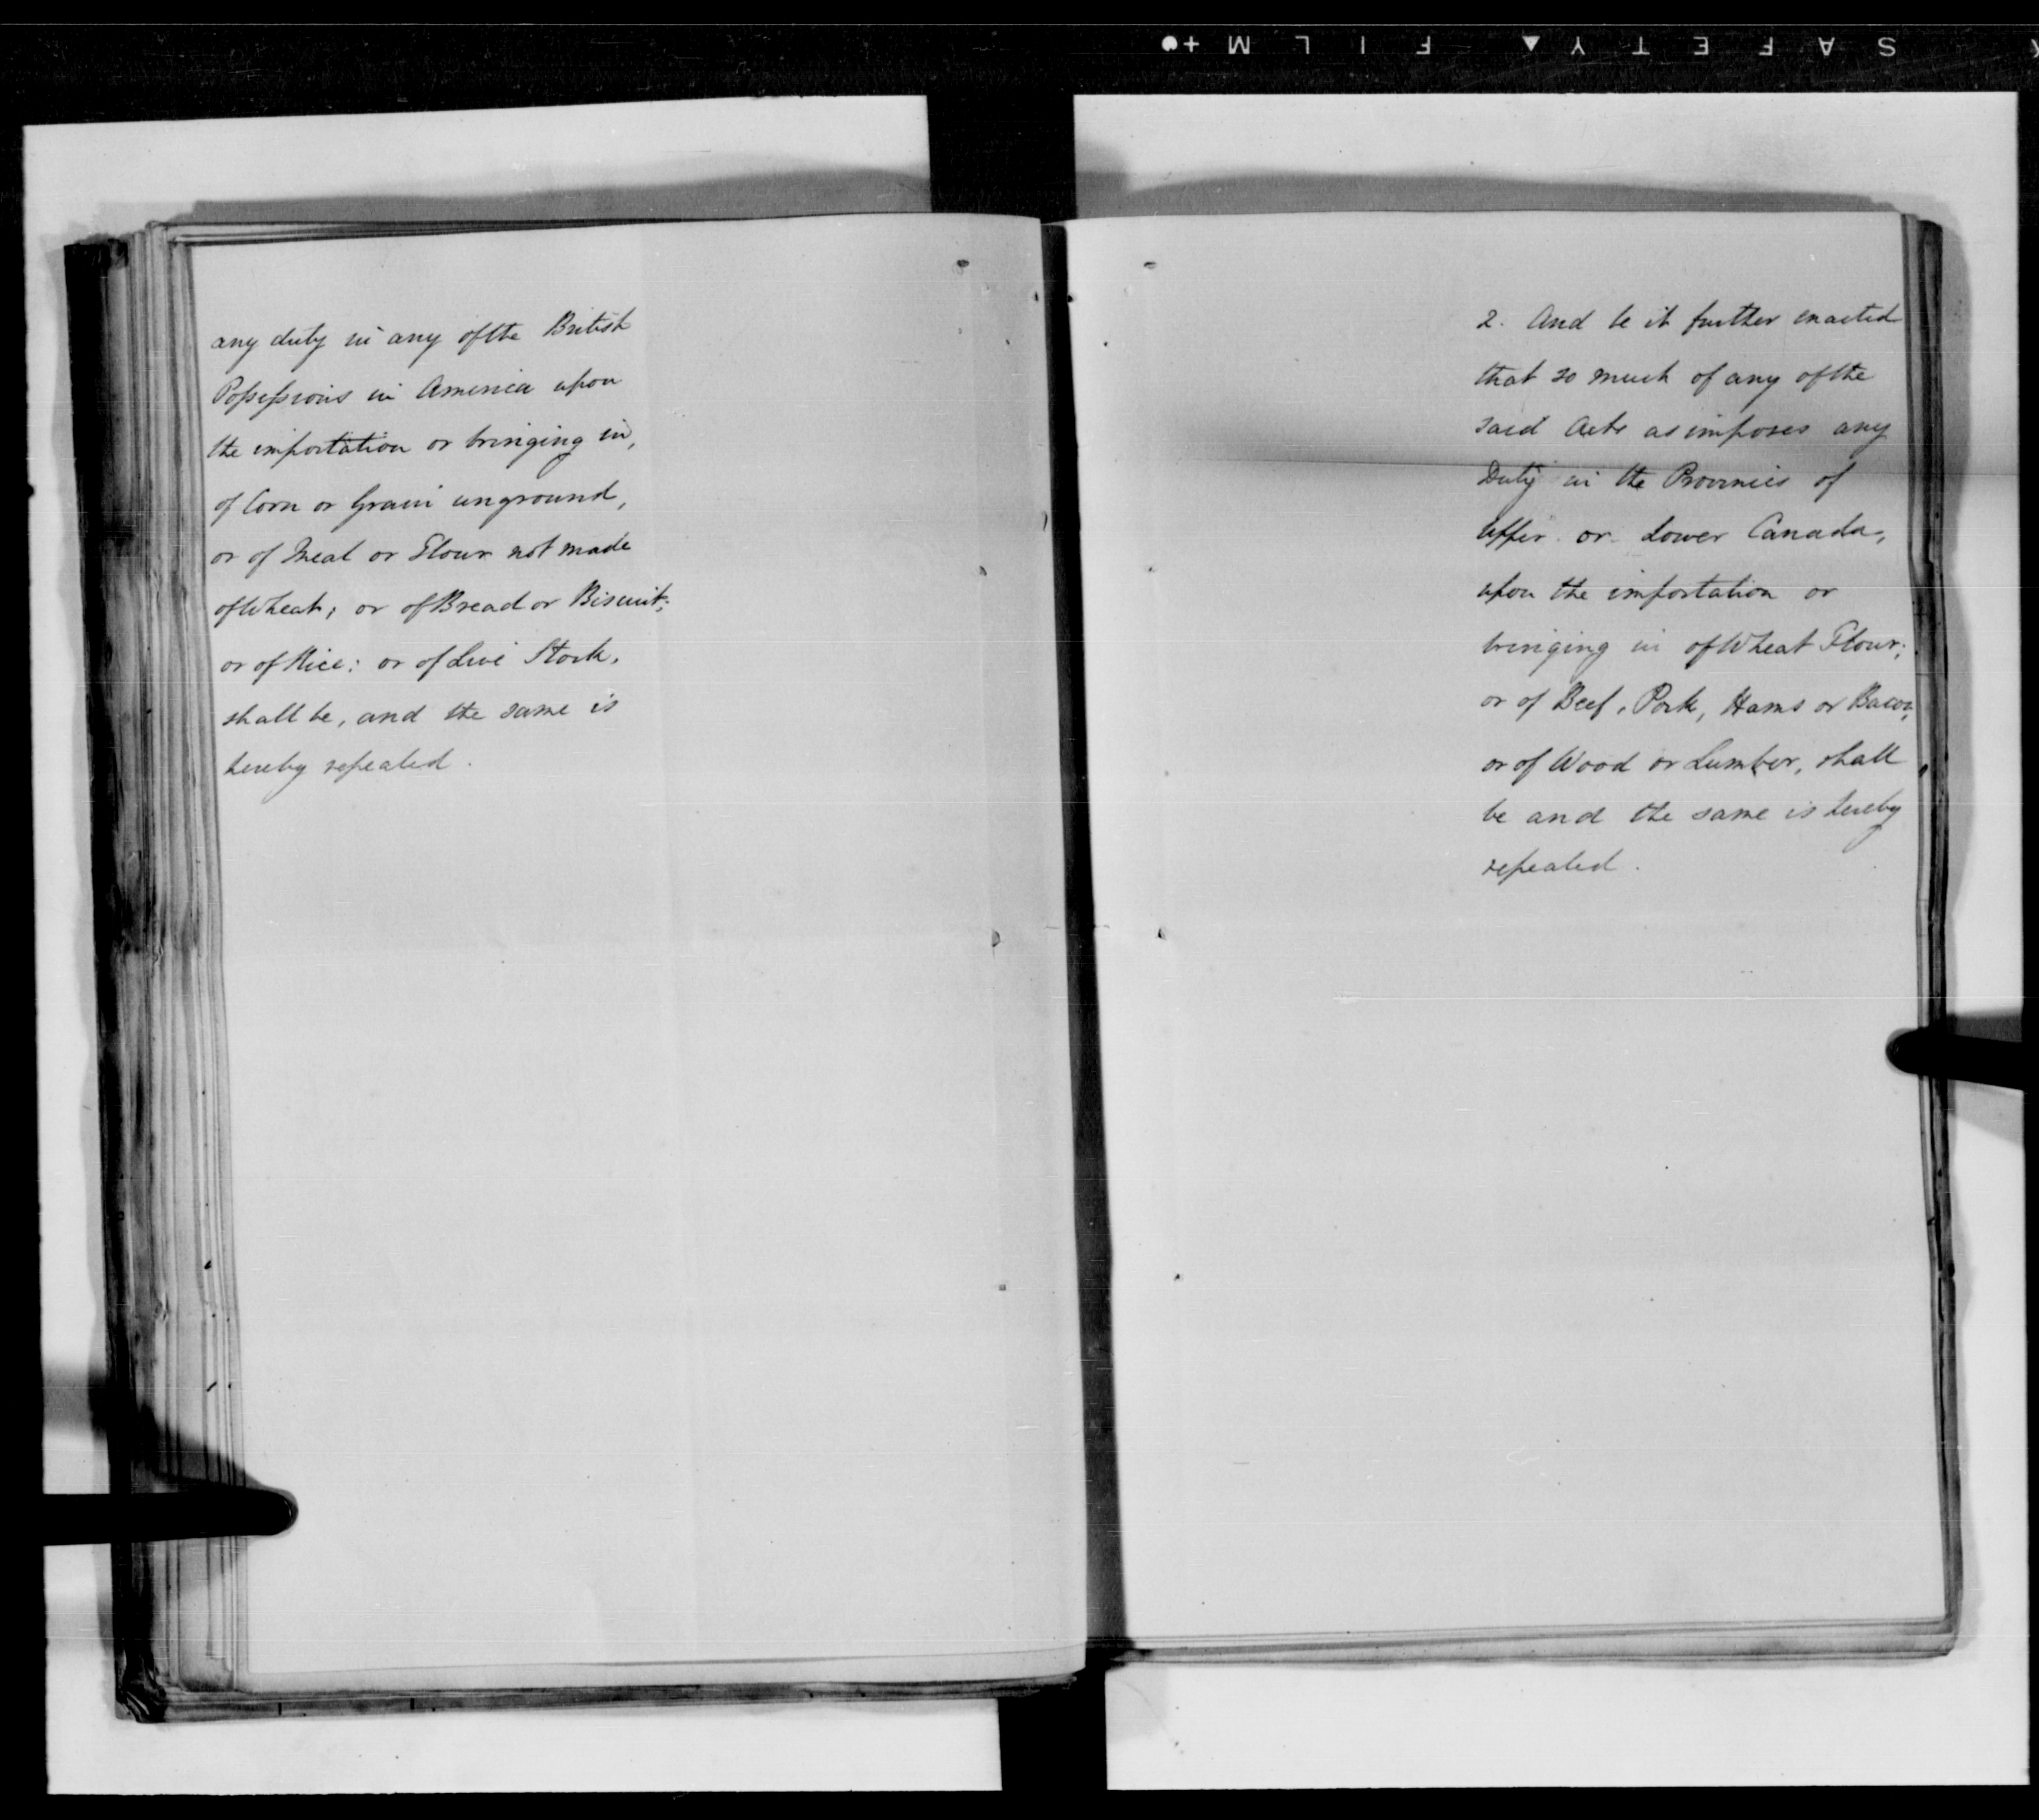 any duty in any of the British
Possessions in America upon
the importation or bringing in,
of Corn or Grain unground,
or of Meal or Flour not made
of Wheat; or of Bread or Biscuit;
or of Rice: or of Live Stock,
shall be, and the same is
hereby repealed.
2. And be it further enacted
that so much of any of the
said Acts as imposes any
Duty in the Provinces of
Upper or Lower Canada,
upon the importation or
bringing in of Wheat Flour;
or of Beef, Pork, Hams or Bacon,
or of Wood or Lumber, shall
be and the same is hereby
repealed.
SAFETY ▲ FILM +●